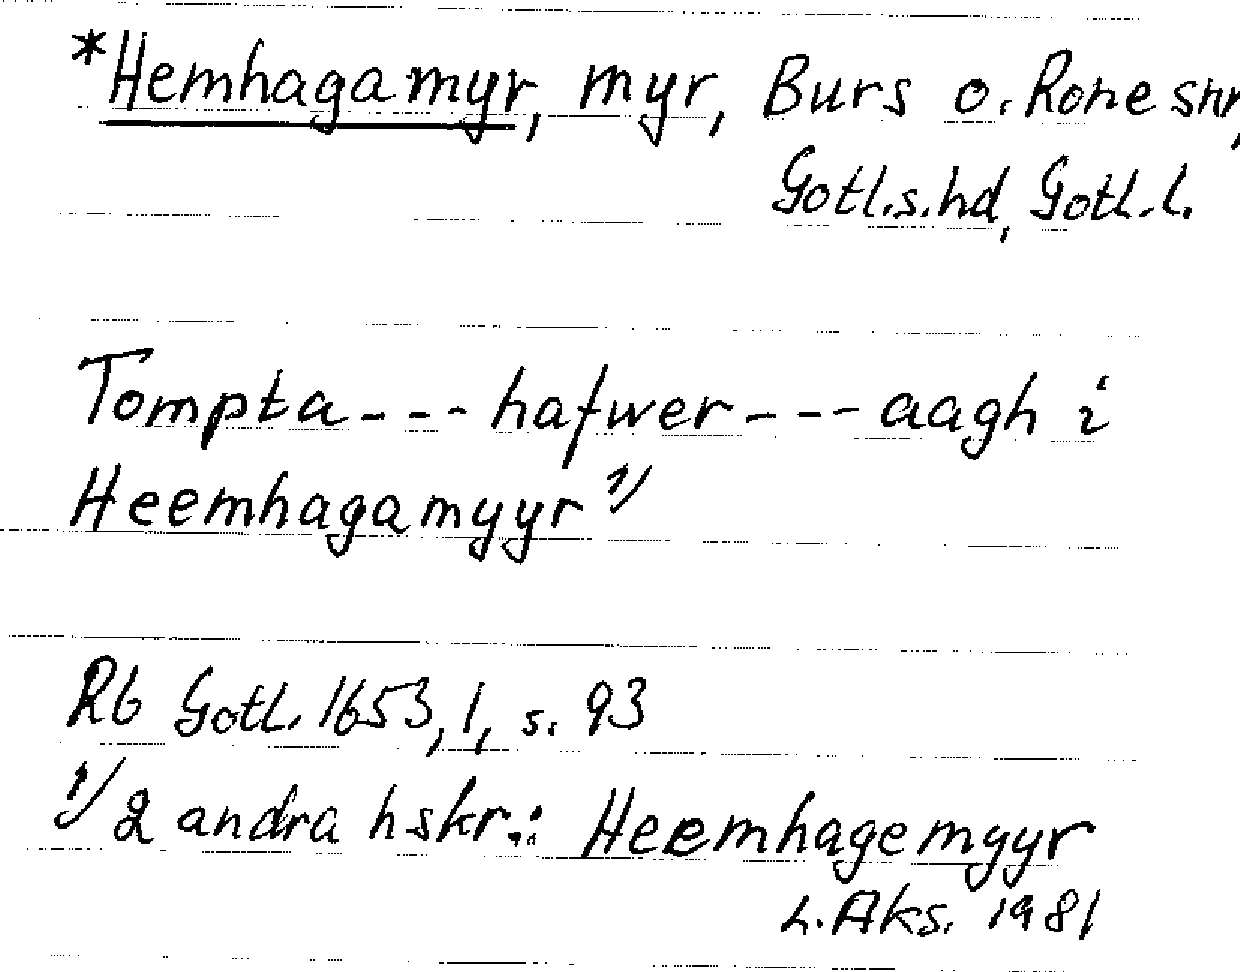 *Hemhagamyr, myr, Burs o. Rone snr,
Gotl.s.hd, Gotl.l.
Tompta --- hafwer --- aagh i
Heemhagamyyr 1)
Rb Gotl. 1653, 1, s. 93
1) 2 andra hskr.: Heemhagemyyr
L. Aks. 1981